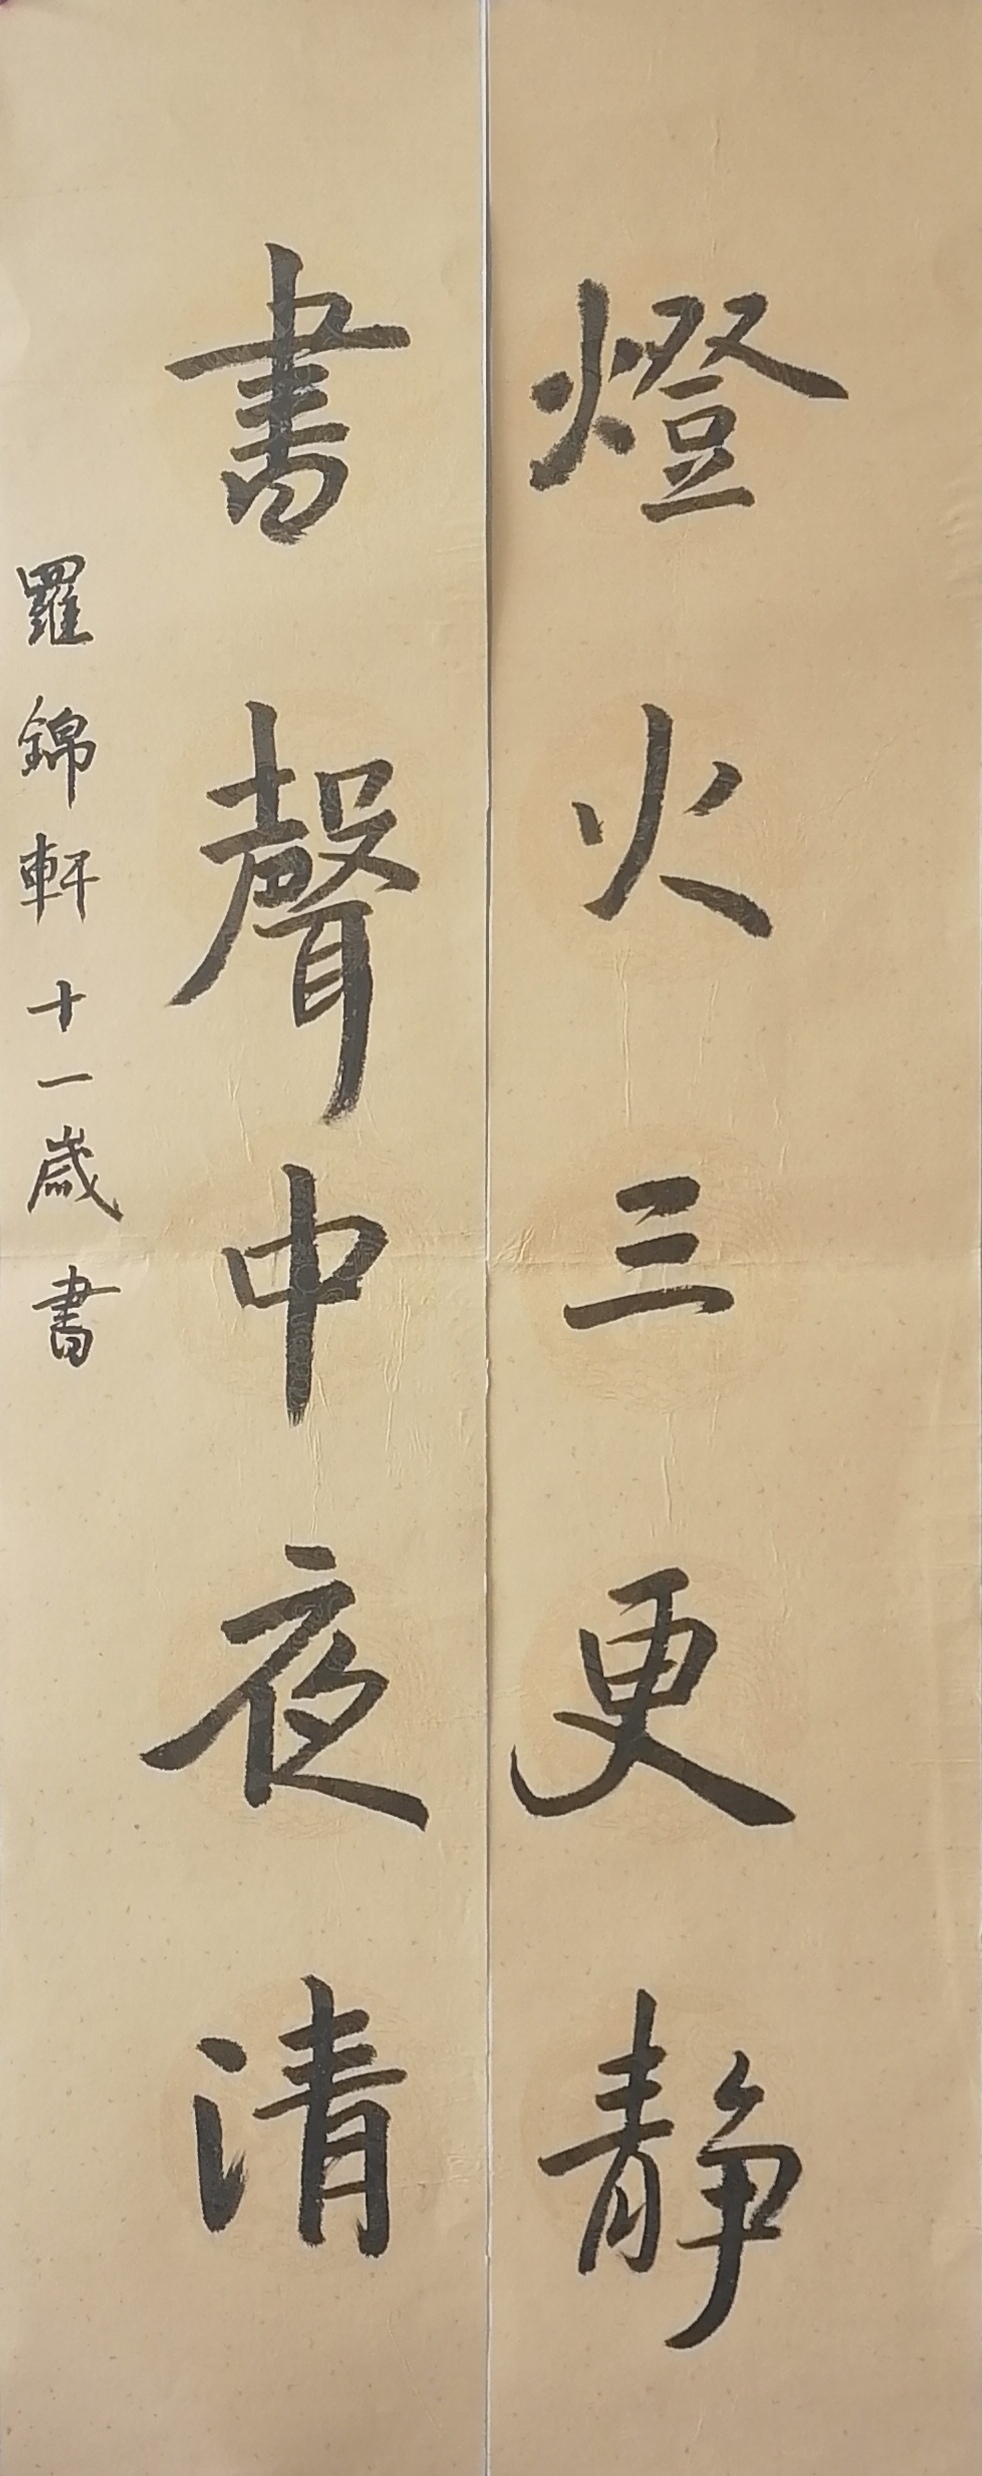 燈火三更靜
書聲中夜清
羅錦軒十一歲書